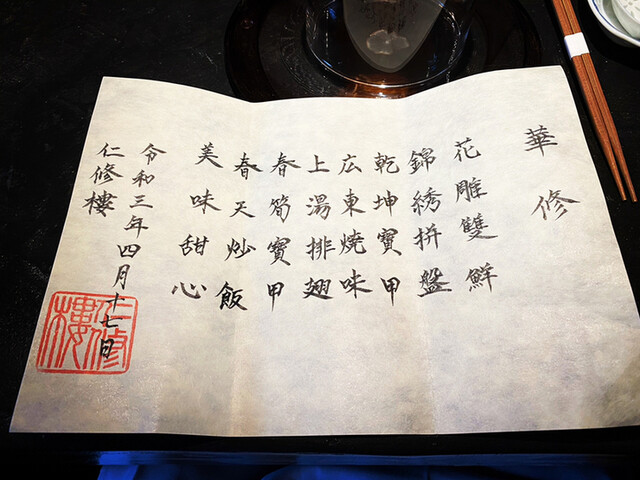 華修
花雕雙鮮
錦綉拼盤
乾坤寶甲
広東燒味
上湯排翅
春筍寶甲
春天炒飯
美味甜心
令和三年四月十七日
仁修樓
仁修樓